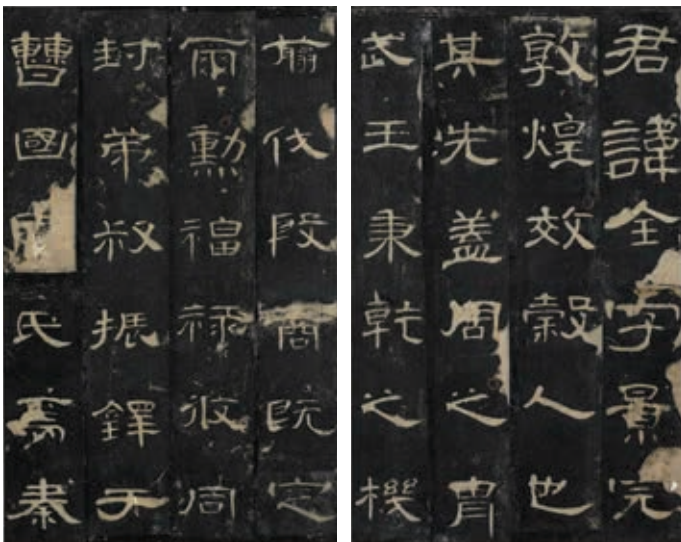 君諱全字景完
敦煌效穀人也
其先蓋周之冑
武王秉乾之機
翦伐殷商既定
爾勳福祿攸同
封弟叔振鐸于
曹國因氏焉秦